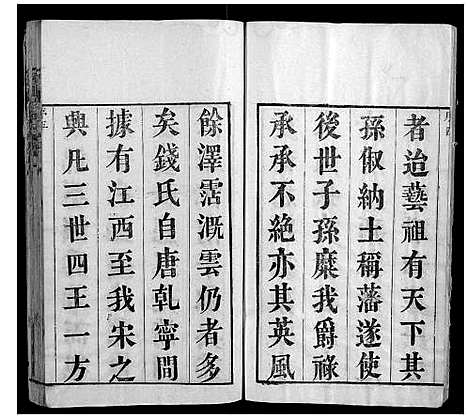 者迨藝祖有天下其
孫俶納土稱藩遂使
後世子孫糜我爵祿
承承不絶亦其英風
餘澤霑溉雲仍者多
矣錢氏自唐乹寧間
據有江西至我宋之
興凡三世四王一方